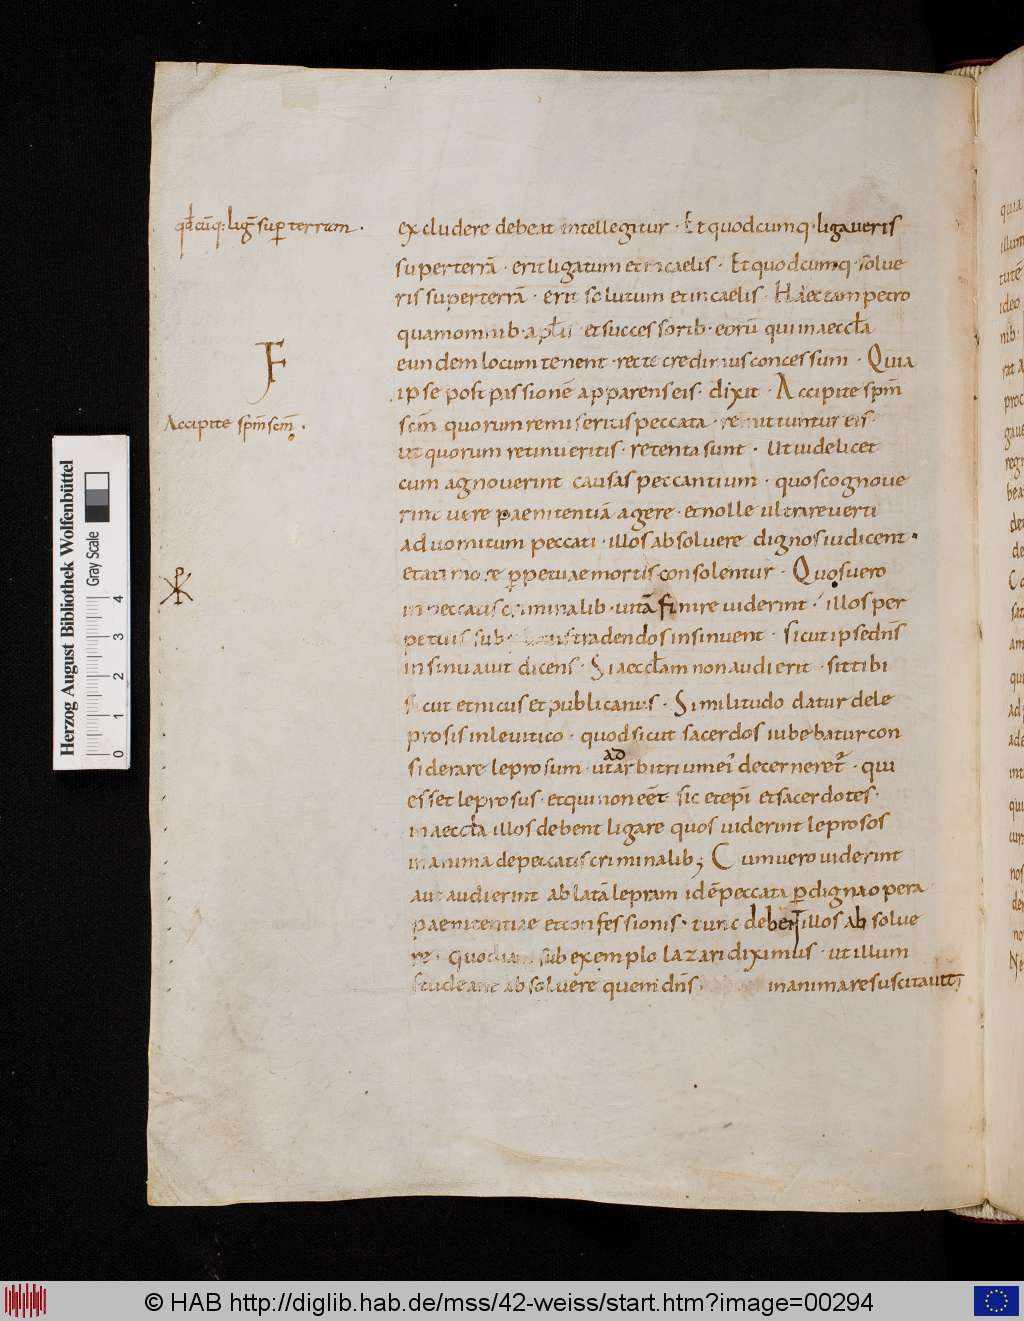 qđ cūq: ligˉ sup̱ terram.
excludere debeat intellegitur · Et quodcumq· ligaueris
super terrā · erit ligatum et in caelis · Et quodcumq· solue
ris super terrā · erit solutum et in caelis · Haec tam petro
quam omnib· apłis et successorib· eorū qui in aeccła
eundem locum tenent · recte credimus concessum · Quia
F
ipse post passionē apparens eis · dixit · Accipite sp̄m
Accipite sp̄m sc̄m .
sc̄m quorum remiseritis peccata · remittuntur eis ·
et quorum retinueritis · retenta sunt · Ut uidelicet
cum agnouerint causas peccantium · quos cognoue
rint uere paenitentiā agere · et nolle ultra reuerti
ad uomitum peccati · illos absoluere dignos iudicent ·
et a timore p̱petuae mortis consolentur · Quos uero
in peccatis criminalib· uitā finire uiderint · illos per
petuis sub tradendos insinuent · sicut ipse dn̄s
insinuauit dicens · Si aecctam non audierit · sit tibi
sicut etnicus et publicanus · Similitudo datur de le
prosis in leuitico · quod sicut sacerdos iubebatur con
siderare leprosum · ut ad arbitrium ei decerneret · qui
esset leprosus · et qui non eēt · sic et ep̄i et sacerdotes ·
in aeccła illos debent ligare quos uiderint leprosos
in anima de peccatis criminalib; Cum uero uiderint
aut audierint ablatā lepram id ē peccata p̱ digna opera
paenitentiae et confessionis · tunc debent illos absolue
re · Quod iam sub exemplo lazari diximus · ut illum
studeant absoluere quem dn̄s in anima resuscitauit
Herzog August Bibliothek Wolfenbüttel
Gray Scale
0 1 2 3 4
© HAB http://diglib.hab.de/mss/42-weiss/start.htm?image=00294